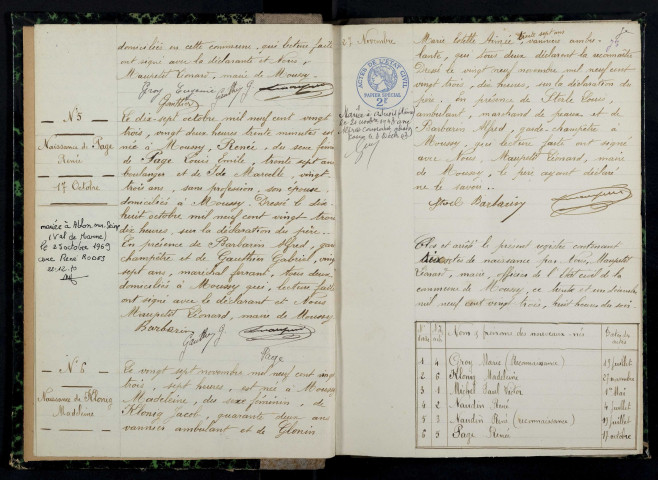 domiciliée en cette commune, qui lecture faite
ont signé avec la déclarante et Nous,
Maupetit Léonard, maire de Moussy.
Gauthier
— N° 5 —
Naissance de Page
Renée
17 Octobre
mariée à Ablon-sur-Seine
(Val de Marne)
le 25 octobre 1969
avec René
22.12.
Le dix-sept octobre mil neuf cent vingt
trois, vingt deux heures trente minutes est
née à Moussy, Renée, du sexe féminin
de Page Louis Emile, trente sept ans
boulanger et de Marcelle, vingt
trois ans, sans profession, son épouse
domiciliés à Moussy. Dressé le dix
huit octobre mil neuf cent vingt trois
dix heures, sur la déclaration du père.
En présence de Barbarin Alfred, garde
champêtre et de Gauthier Gabriel, vingt
sept ans, maréchal ferrant, tous deux
domiciliés à Moussy qui, lecture faite
ont signé avec le déclarant et Nous
Maupetit Léonard, maire de Moussy
Barbarin
Page
— N° 6 —
Naissance de Klonig
Madeleine
Le vingt sept novembre mil neuf cent vingt
trois, sept heures, est née à Moussy
Madeleine, du sexe féminin, de
Klonig Jacob, quarante deux ans
vannier ambulant et de
27 Novembre
ACTES DE L'ÉTAT CIVIL
PAPIER SPÉCIAL
2F
Mariée à
le 20 octobre
Marie Estelle Aimée, trente sept ans, vannière ambu-
lante, qui tous deux déclarent la reconnaître
Dressé le vingt neuf novembre mil neuf cent
vingt trois, dix heures, sur la déclaration du
père, en présence de Louis,
ambulant, marchand de peaux et de
Barbarin Alfred, garde-champêtre à
Moussy, qui lecture faite ont signé
avec Nous, Maupetit Léonard, maire
de Moussy, le père ayant déclaré
ne le savoir.
Barbarin
Clos et arrêté le présent registre contenant
actes de naissance par Nous, Maupetit
Léonard, maire, officier de l'état civil de la
commune de Moussy, ce trente et un décembre
mil neuf cent vingt trois, huit heures du soir.
Nom & prénoms des nouveaux-nés
1 4 Marie (Reconnaissance) 23 juillet
2 6 Klonig Madeleine 27 novembre
3 1 Michel Paul Victor 1er Mai
4 2 Naudin René 4 juillet
5 3 Naudin René (reconnaissance)
6 5 Page Renée 17 octobre